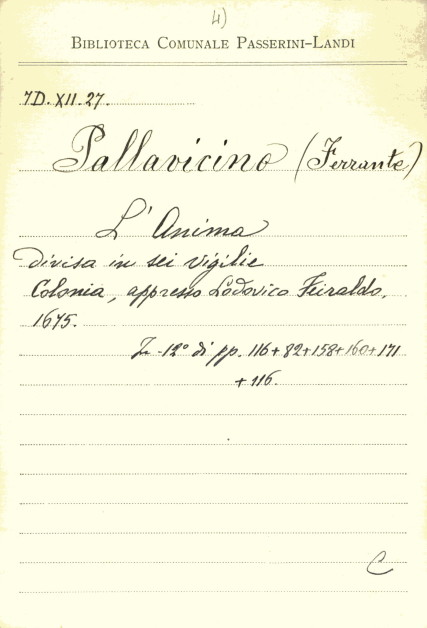 4)
BIBLIOTECA COMUNALE PASSERINI-LANDI
7D. XII. 27.
Pallavicino (Ferrante)
L'Anima
divisa in sei vigilie
Colonia, appresso Lodovico Feiraldo,
1675.
In -12° di pp. 116+82+158+160+171
+116.
C